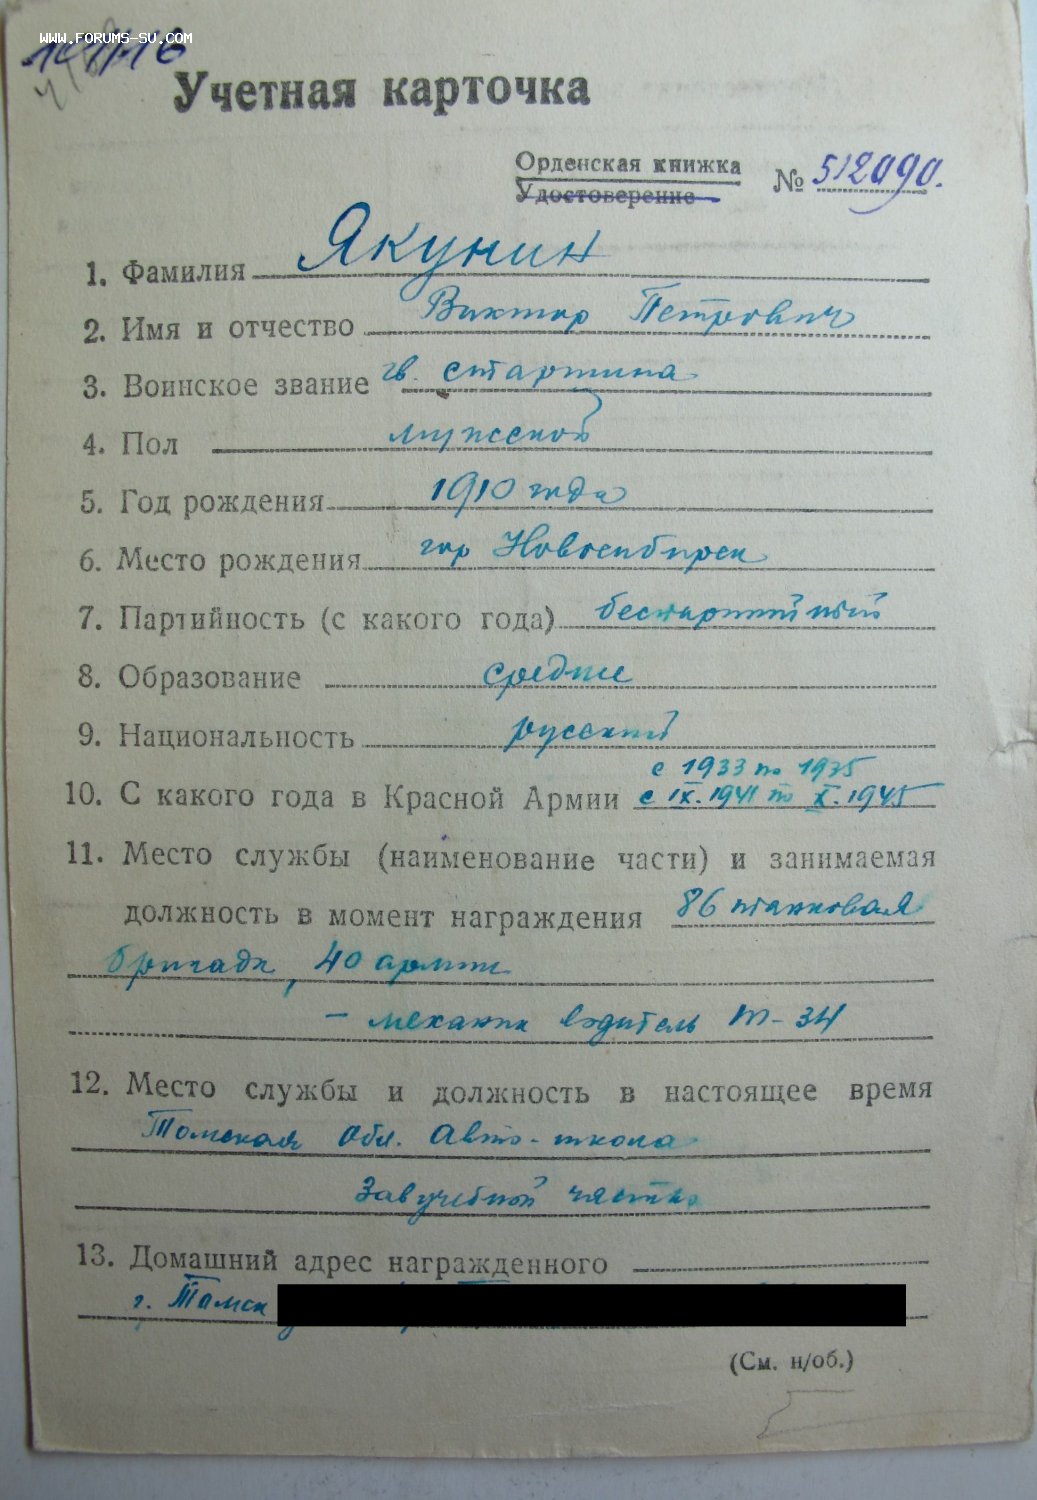 WWW.FORUMS-SU.COM
Учетная карточка
Орденская книжка
Удостоверение
№ 512090.
1. Фамилия Якунин
2. Имя и отчество Виктор Петрович
3. Воинское звание гв. старшина
4. Пол мужской
5. Год рождения 1910 года
6. Место рождения гор Новосибирск
7. Партийность (с какого года) беспартийный
8. Образование средне
9. Национальность русский
с 1933 по 1935
10. С какого года в Красной Армии с IX.1941 по X.1945
11. Место службы (наименование части) и занимаемая
должность в момент награждения 86 танковая
бригада, 40 армии
- механик водитель Т-34
12. Место службы и должность в настоящее время
Томская обл. Авто-школа
Зав учебной частью
13. Домашний адрес награжденного
г. Томск
(См. н/об.)